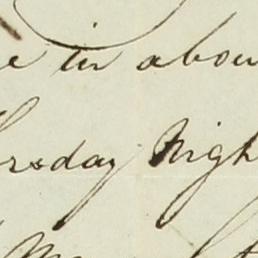 e in abou
rsday Nigh